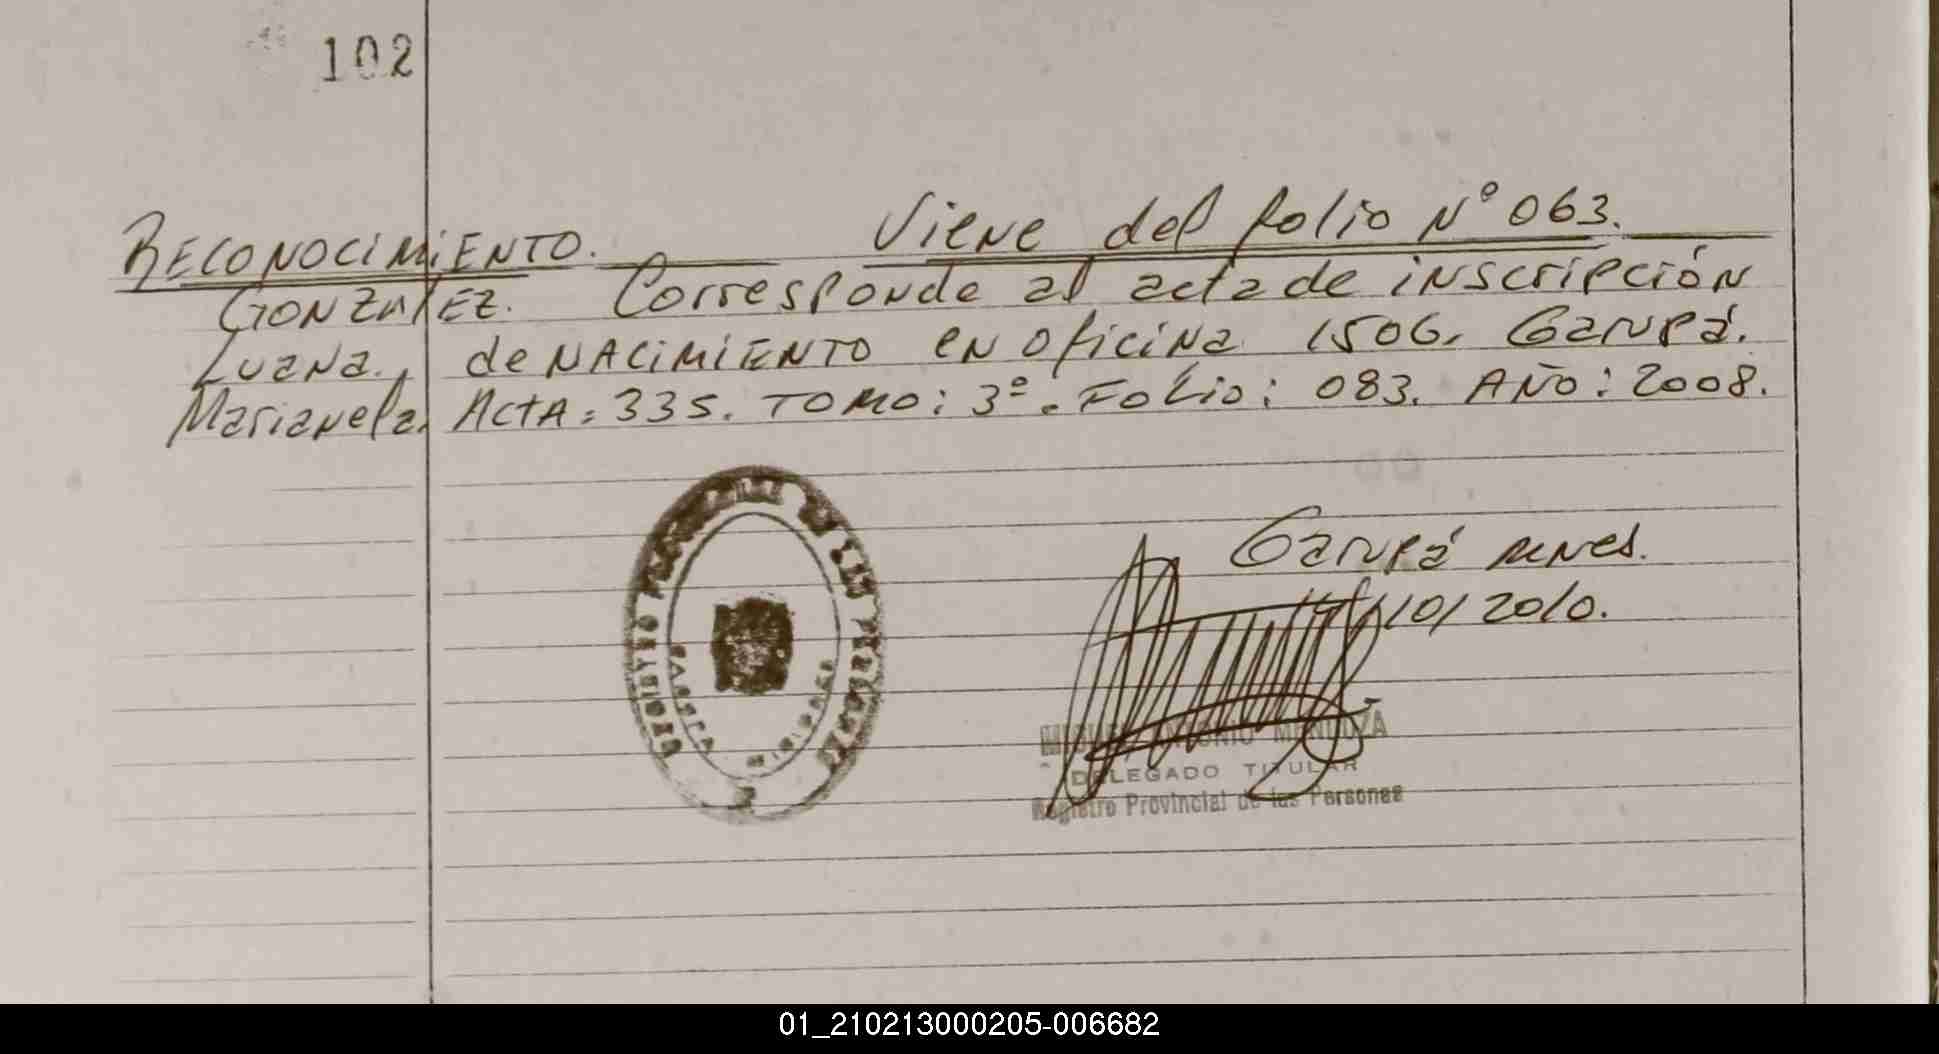 102
Viene del folio Nº 063.
RECONOCIMIENTO.
GONZALEZ. Corresponde al acta de inscripción
Luana. de NACIMIENTO en oficina 1506. Garupá.
Marianela. ACTA: 335. TOMO: 3º. FOLIO: 083. AÑO: 2008.
Garupá Mnes.
/10/2010.
REGISTRO PROVINCIAL DE LAS PERSONAS
GARUPA
MISIONES
MIGUEL ANTONIO MENDOZA
DELEGADO TITULAR
Registro Provincial de las Personas
01_210213000205-006682